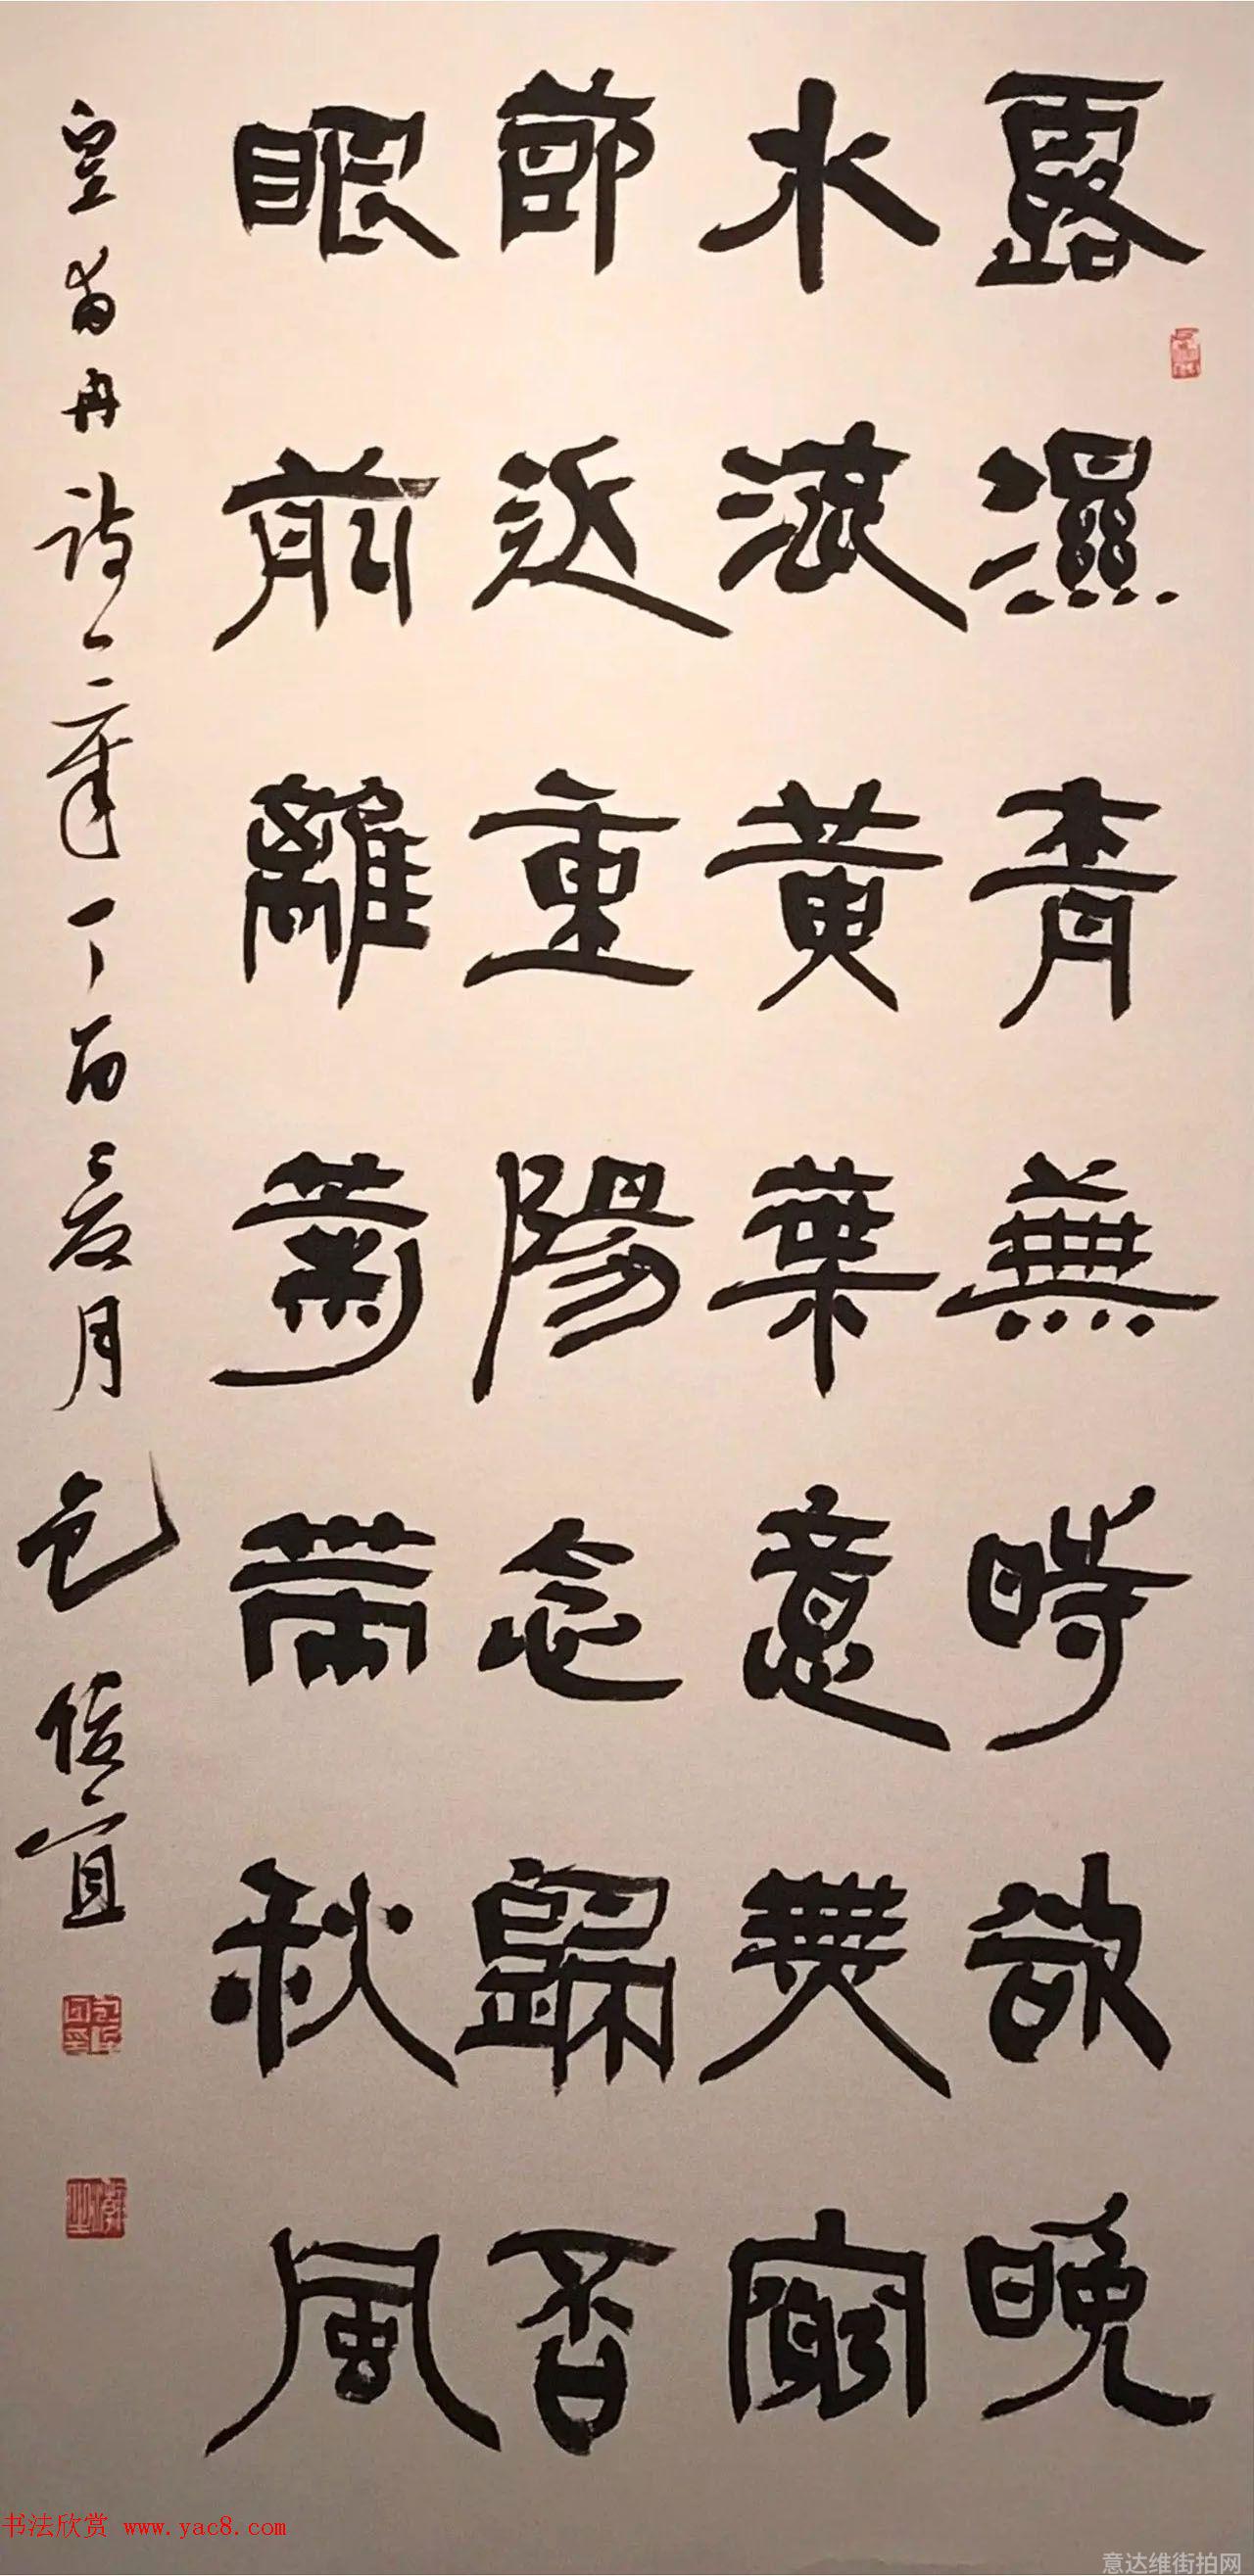 露濕青蕪時欲晚
水流黄葉意無窮
節近重陽念歸否
眼前籬菊带秋風
皇甫冉詩一章丁酉夏月
宣
书法欣赏 www.yac8.com
意达维街拍网